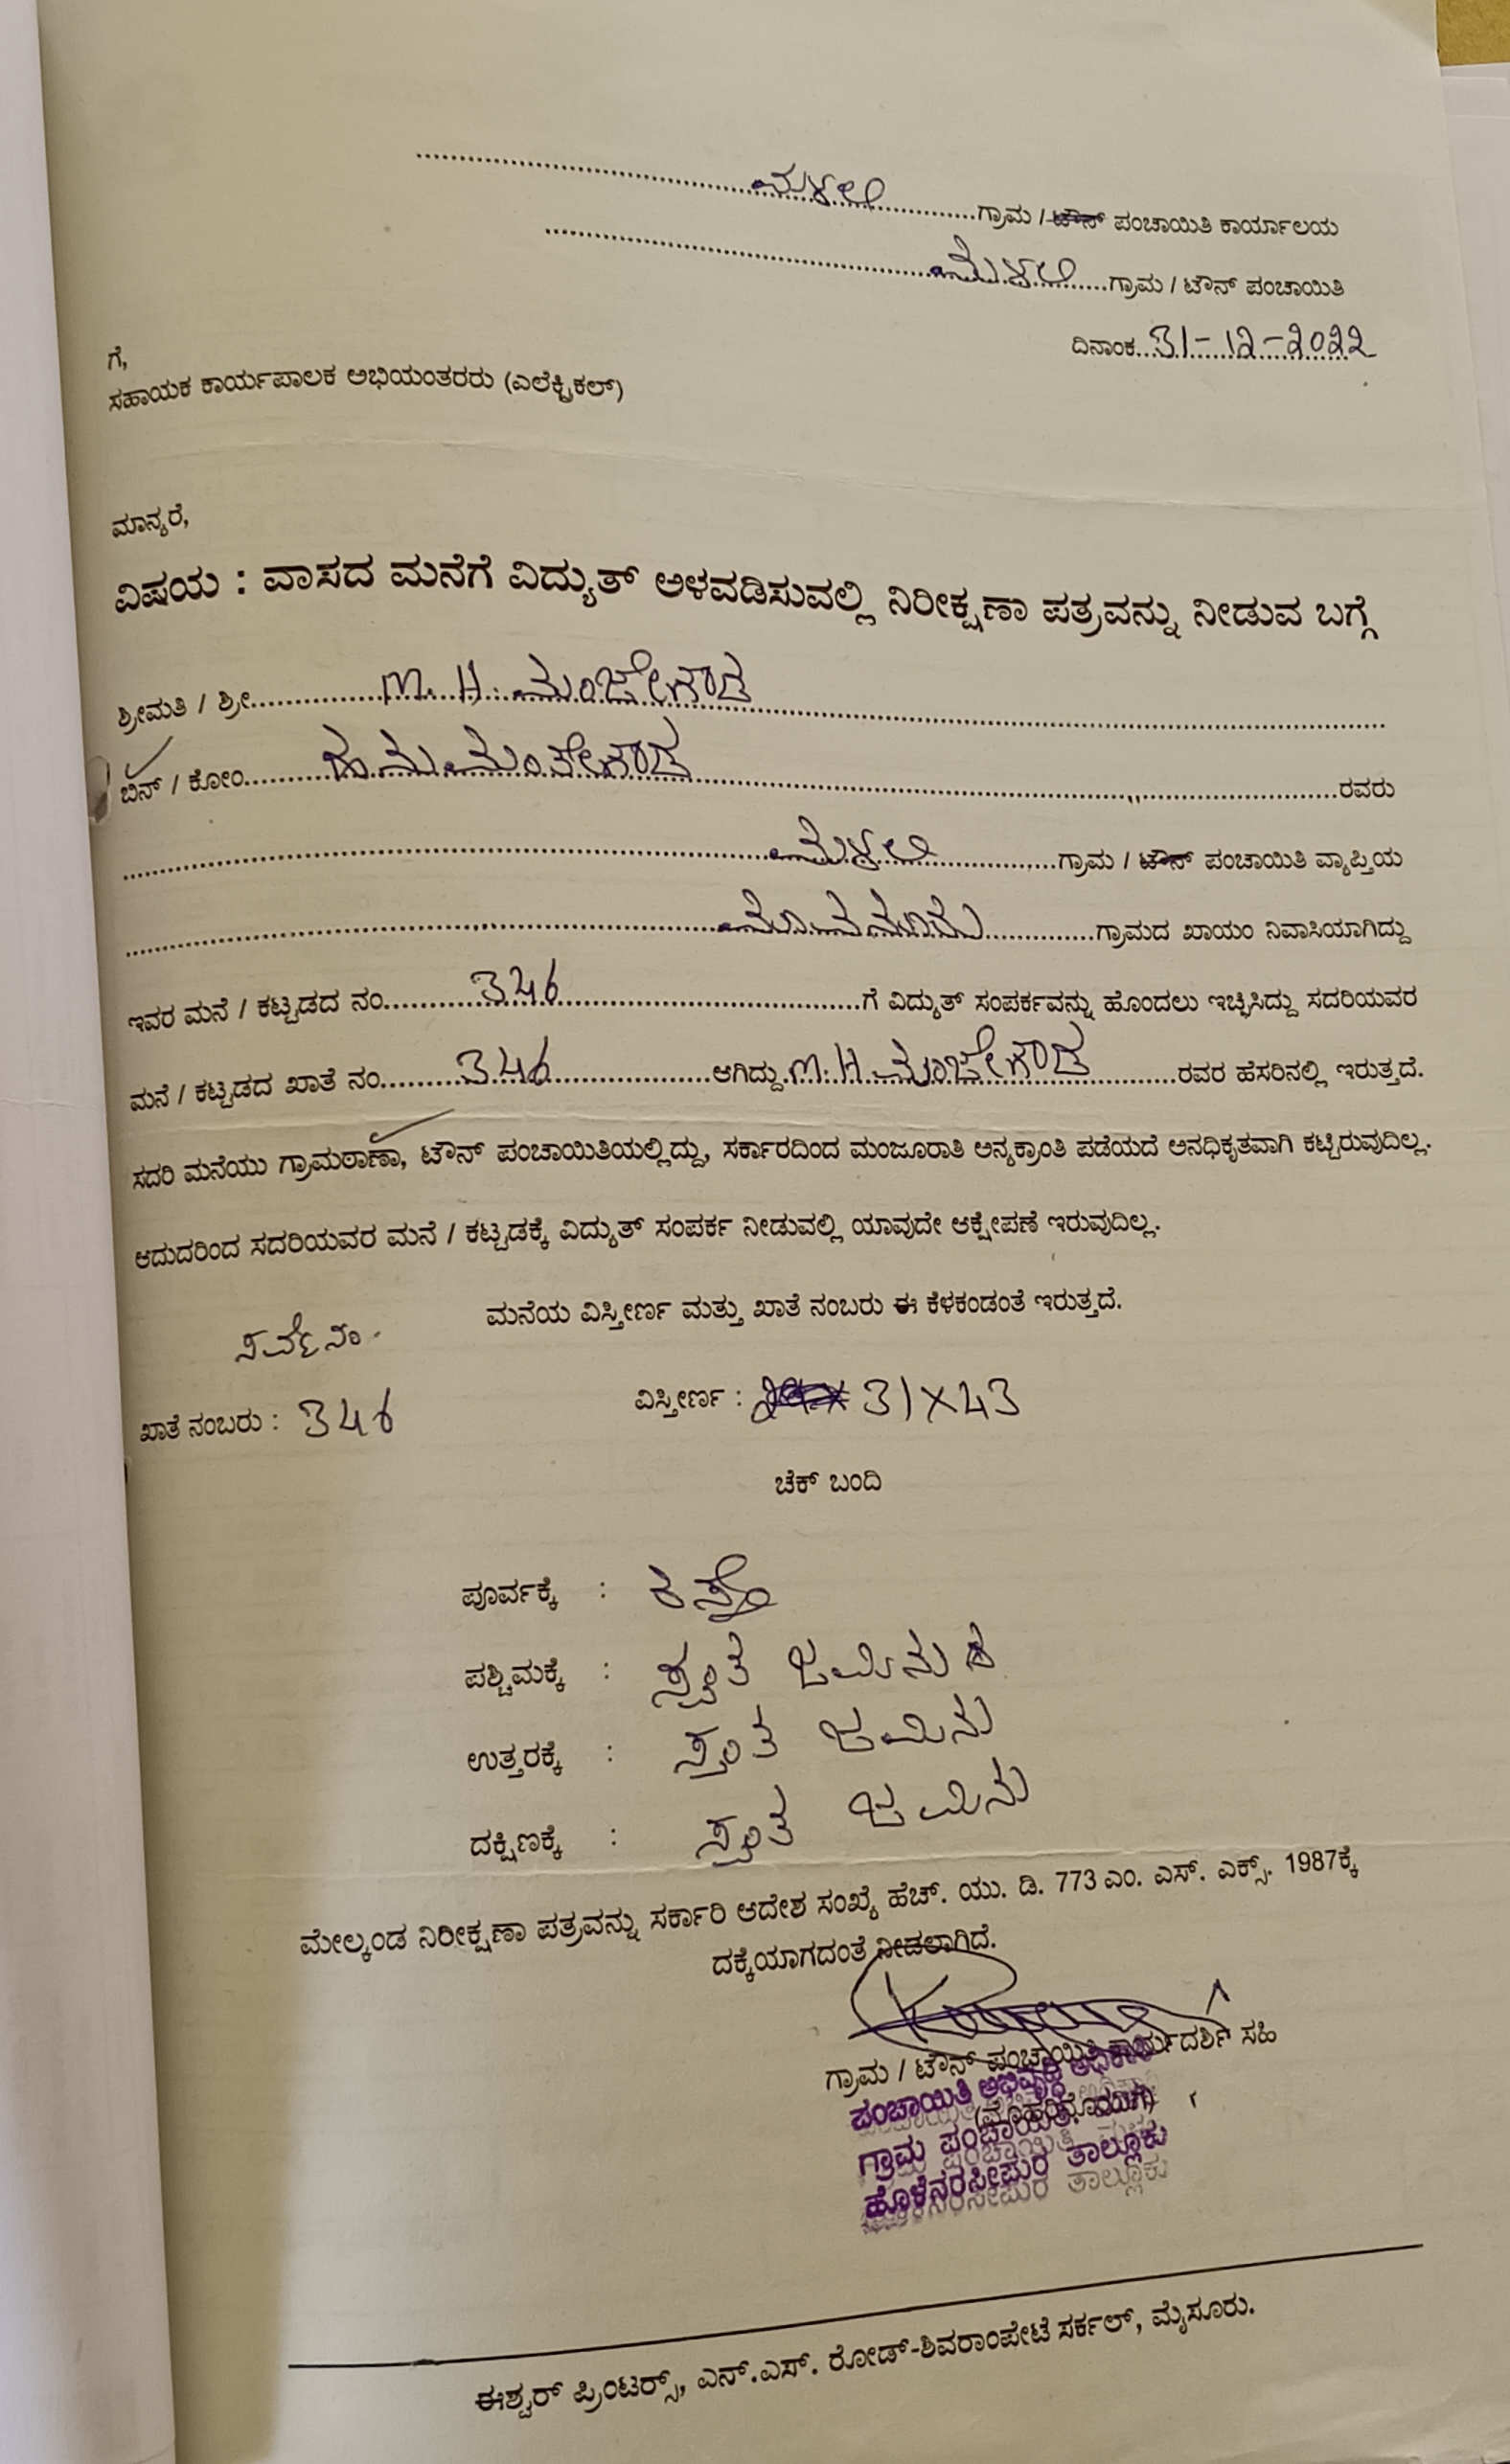 ಗ್ರಾಮ / ಟೌನ್ ಪಂಚಾಯಿತಿ ಕಾರ್ಯಾಲಯ
ಗ್ರಾಮ / ಟೌನ್ ಪಂಚಾಯಿತಿ
ದಿನಾಂಕ 31-12-2022
ಗೆ,
ಸಹಾಯಕ ಕಾರ್ಯಪಾಲಕ ಅಭಿಯಂತರರು (ಎಲೆಕ್ಟ್ರಿಕಲ್)
ಮಾನ್ಯರೆ,
ವಿಷಯ : ವಾಸದ ಮನೆಗೆ ವಿದ್ಯುತ್ ಅಳವಡಿಸುವಲ್ಲಿ ನಿರೀಕ್ಷಣಾ ಪತ್ರವನ್ನು ನೀಡುವ ಬಗ್ಗೆ
ಶ್ರೀಮತಿ / ಶ್ರೀ M. H. ಮಂಜೇಗೌಡ
ಬಿನ್ / ಕೋಂ ರವರು
ಗ್ರಾಮ / ಟೌನ್ ಪಂಚಾಯಿತಿ ವ್ಯಾಪ್ತಿಯ
ಗ್ರಾಮದ ಖಾಯಂ ನಿವಾಸಿಯಾಗಿದ್ದು
ಇವರ ಮನೆ / ಕಟ್ಟಡದ ನಂ 346 ಗೆ ವಿದ್ಯುತ್ ಸಂಪರ್ಕವನ್ನು ಹೊಂದಲು ಇಚ್ಛಿಸಿದ್ದು ಸದರಿಯವರ
ಮನೆ / ಕಟ್ಟಡದ ಖಾತೆ ನಂ 346 ಆಗಿದ್ದು M. H. ಮಂಜೇಗೌಡ ರವರ ಹೆಸರಿನಲ್ಲಿ ಇರುತ್ತದೆ.
ಸದರಿ ಮನೆಯು ಗ್ರಾಮಠಾಣಾ, ಟೌನ್ ಪಂಚಾಯಿತಿಯಲ್ಲಿದ್ದು, ಸರ್ಕಾರದಿಂದ ಮಂಜೂರಾತಿ ಅನ್ಯಕ್ರಾಂತಿ ಪಡೆಯದೆ ಅನಧಿಕೃತವಾಗಿ ಕಟ್ಟಿರುವುದಿಲ್ಲ.
ಆದುದರಿಂದ ಸದರಿಯವರ ಮನೆ / ಕಟ್ಟಡಕ್ಕೆ ವಿದ್ಯುತ್ ಸಂಪರ್ಕ ನೀಡುವಲ್ಲಿ ಯಾವುದೇ ಆಕ್ಷೇಪಣೆ ಇರುವುದಿಲ್ಲ.
ಮನೆಯ ವಿಸ್ತೀರ್ಣ ಮತ್ತು ಖಾತೆ ನಂಬರು ಈ ಕೆಳಕಂಡಂತೆ ಇರುತ್ತದೆ.
ಖಾತೆ ನಂಬರು : 346 ವಿಸ್ತೀರ್ಣ : 31X43
ಚೆಕ್ ಬಂದಿ
ಪೂರ್ವಕ್ಕೆ : ರಸ್ತೆ
ಪಶ್ಚಿಮಕ್ಕೆ : ಸ್ವಂತ ಜಮೀನು
ಉತ್ತರಕ್ಕೆ : ಸ್ವಂತ ಜಮೀನು
ದಕ್ಷಿಣಕ್ಕೆ : ಸ್ವಂತ ಜಮೀನು
ಮೇಲ್ಕಂಡ ನಿರೀಕ್ಷಣಾ ಪತ್ರವನ್ನು ಸರ್ಕಾರಿ ಆದೇಶ ಸಂಖ್ಯೆ ಹೆಚ್. ಯು. ಡಿ. 773 ಎಂ. ಎಸ್. ಎಕ್ಸ್. 1987ಕ್ಕೆ
ದಕ್ಕೆಯಾಗದಂತೆ ನೀಡಲಾಗಿದೆ.
ಗ್ರಾಮ / ಟೌನ್ ಪಂಚಾಯಿತಿ ಕಾರ್ಯದರ್ಶಿ ಸಹಿ
ಪಂಚಾಯಿತಿ ಅಭಿವೃದ್ಧಿ ಅಧಿಕಾರಿ
(ಮೊಹರಿನೊಂದಿಗೆ)
ಗ್ರಾಮ ಪಂಚಾಯಿತಿ
ಹೊಳೆನರಸೀಪುರ ತಾಲ್ಲೂಕು
ಈಶ್ವರ್ ಪ್ರಿಂಟರ್ಸ್, ಎನ್.ಎಸ್. ರೋಡ್-ಶಿವರಾಂಪೇಟೆ ಸರ್ಕಲ್, ಮೈಸೂರು.